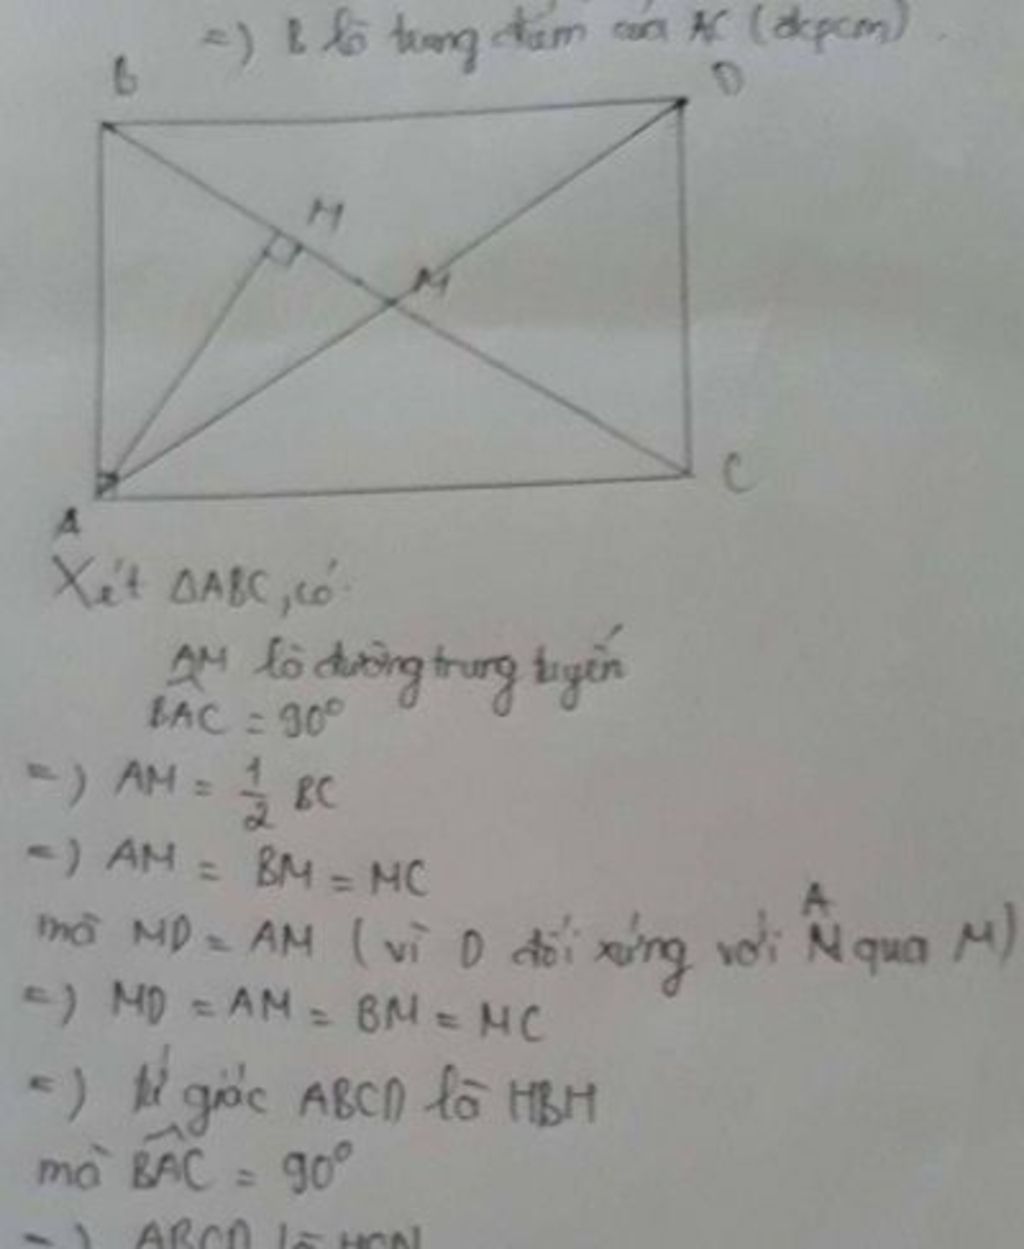 =) B là trung điểm của AC (đcpcm).
B
D
H
M
A
C
Xét ΔABC, có
AM là đường trung tuyến
BAC = 90°
=) AM = 1/2 BC
=) AM = BM = MC
mà MD = AM (vì D đối xứng với A N qua M)
=) MD = AM = BM = MC
=) tứ giác ABCD là HBH
mà BAC = 90°
=) ABCD là HCN